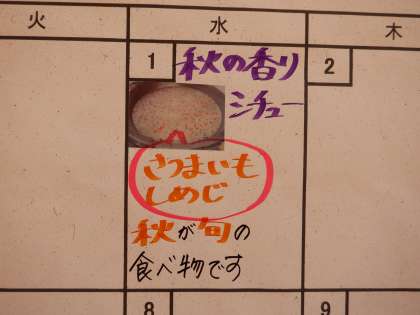 火 水 木
1 秋の香り 2
シチュー
さつまいも
しめじ
秋が旬の
食べ物です
8 9